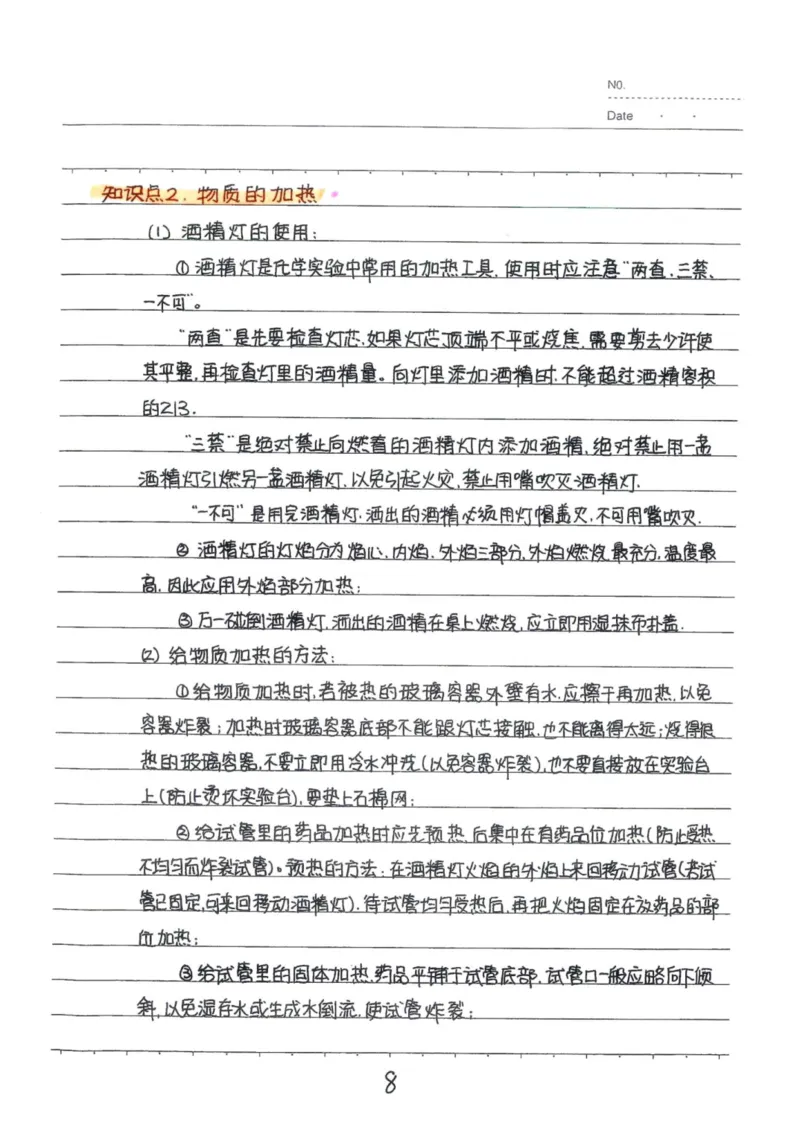 NO.
Date
知识点2. 物质的加热
(1) 酒精灯的使用:
①酒精灯是化学实验中常用的加热工具, 使用时应注意"两查、三禁、
一不可"。
"两查"是先要检查灯芯,如果灯芯顶端不平或烧焦,需要剪去少许使
其平整,再检查灯里的酒精量。向灯里添加酒精时,不能超过酒精容积
的2/3.
"三禁"是绝对禁止向燃着的酒精灯内添加酒精,绝对禁止用一盏
酒精灯引燃另一盏酒精灯,以免引起火灾,禁止用嘴吹灭酒精灯.
"一不可"是用完酒精灯.洒出的酒精必须用灯帽盖灭,不可用嘴吹灭.
② 酒精灯的灯焰分为焰心.内焰.外焰三部分,外焰燃烧最充分,温度最
高,因此应用外焰部分加热;
③万一碰倒酒精灯,洒出的酒精在桌上燃烧,应立即用湿抹布扑盖.
(2) 给物质加热的方法:
①给物质加热时,若被热的玻璃容器外壁有水,应擦干再加热,以免
容器炸裂;加热时玻璃容器底部不能跟灯芯接触,也不能离得太远;烧得很
热的玻璃容器,不要立即用冷水冲洗(以免容器炸裂),也不要直接放在实验台
上(防止烫坏实验台),要垫上石棉网;
②给试管里的药品加热时应先预热,后集中在有药品位加热(防止受热
不均匀而炸裂试管)。预热的方法:在酒精灯火焰的外焰上来回移动试管(若试
管已固定,可来回移动酒精灯).待试管均匀受热后,再把火焰固定在放药品的部
位加热;
③给试管里的固体加热,药品平铺于试管底部,试管口一般应略向下倾
斜,以免湿存水或生成水倒流,使试管炸裂;
8